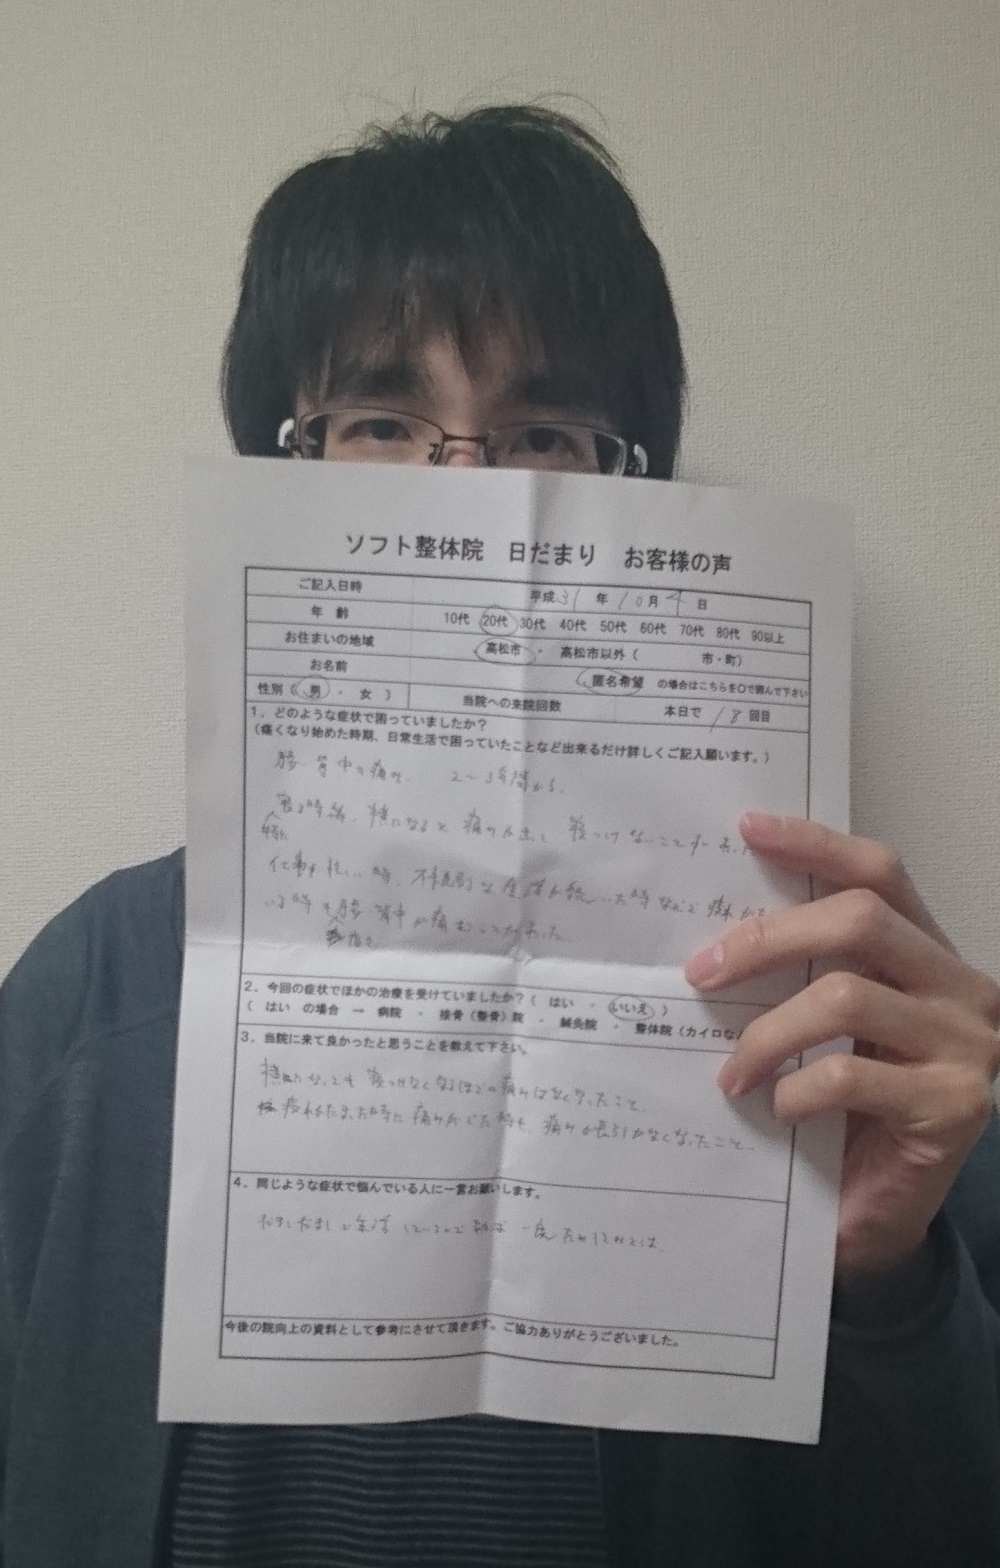 ソフト整体院 日だまり お客様の声
ご記入日時 平成31年10月4日
年齢 10代 20代 30代 40代 50代 60代 70代 80代 90以上
お住まいの地域 高松市 ・ 高松市以外( 市・町)
お名前 匿名希望 の場合はこちらを○で囲んで下さい
性別( 男 ・ 女 ) 当院への来院回数 本日で 18 回目
1、どのような症状で困っていましたか?
(痛くなり始めた時期、日常生活で困っていたことなど出来るだけ詳しくご記入願います。)
腰 背中の痛み 2〜3年
寝る時 横になると 痛みが 寝つけないことが
仕事が忙しい時、不規則な生活が続いた時など 疲れが
いる時 腰 背中が痛むことがあった
2、今回の症状でほかの治療を受けていましたか?( はい ・ いいえ )
( はい の場合 → 病院 ・ 接骨(整骨)院 ・ 鍼灸院 ・ 整体院(カイロな
3、当院に来て良かったと思うことを教えて下さい。
横になっても 寝つけなくなるほどの痛みはなくなったこと
疲れがたまった時に 痛みがでた時も 痛みが長引かなくなったこと
4、同じような症状で悩んでいる人に一言お願いします。
だましだまし生活しているので 一度ためしてみては
今後の院向上の資料として参考にさせて頂きます。ご協力ありがとうございました。